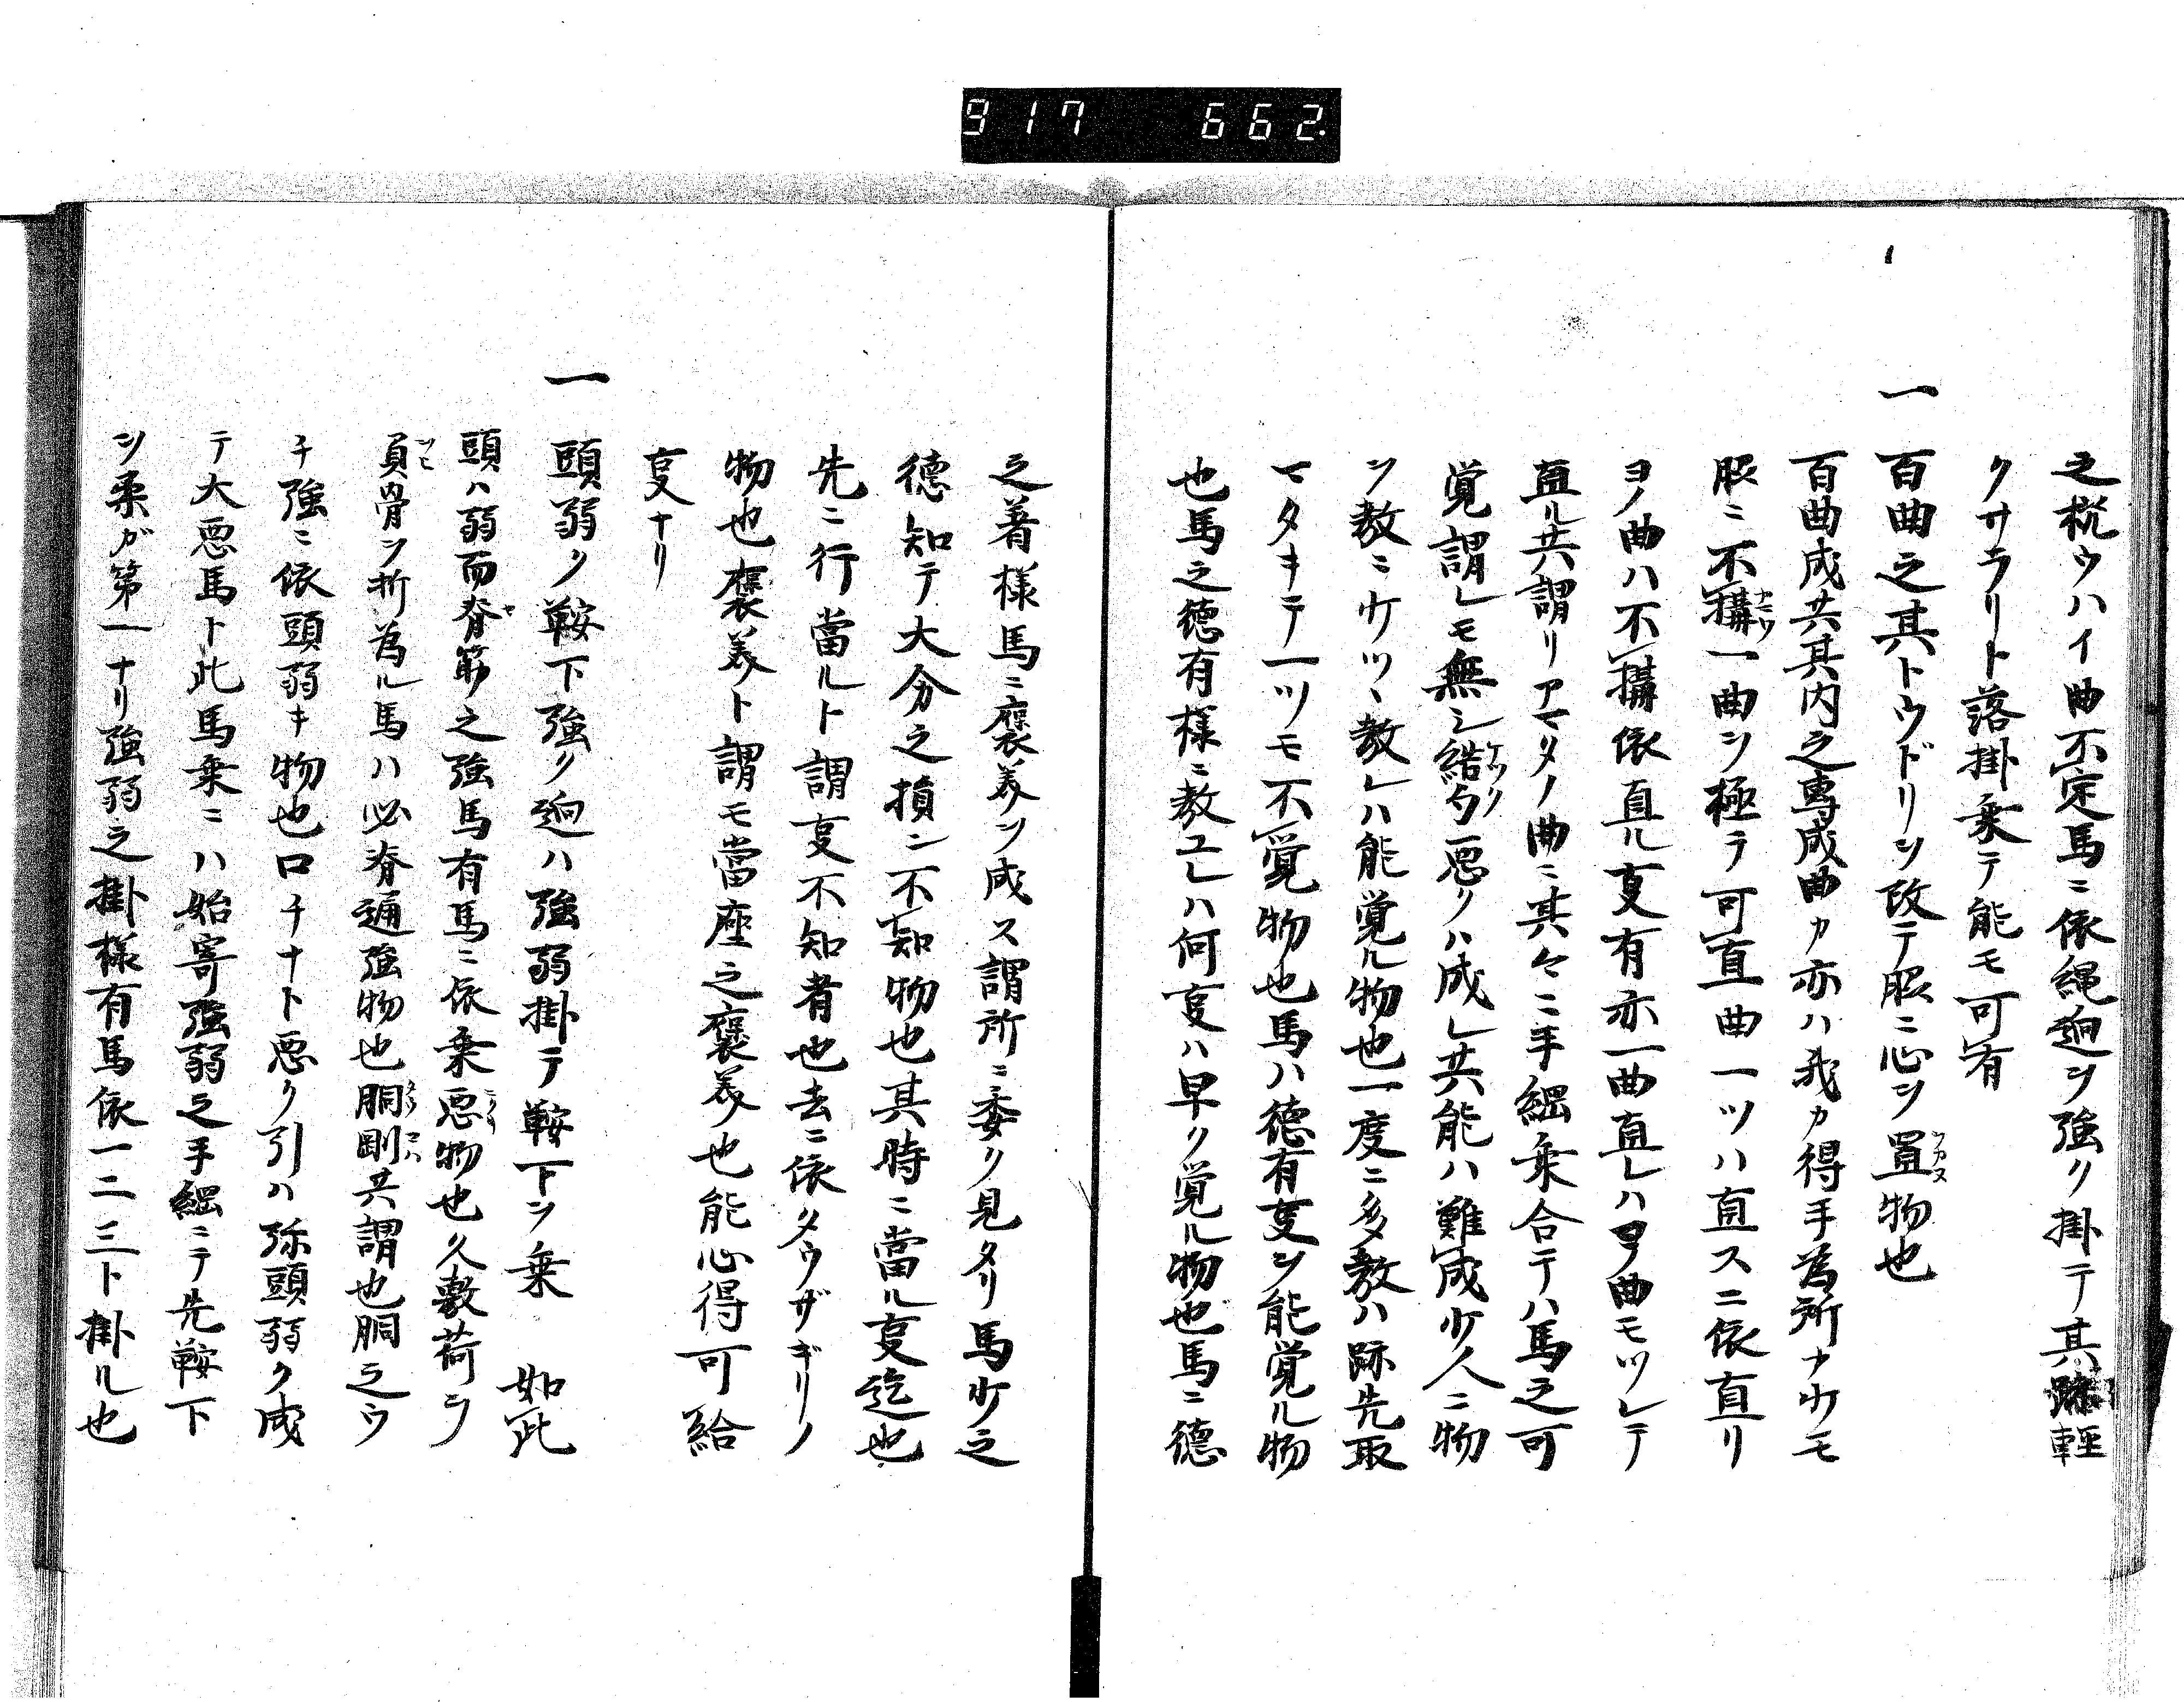 917 662.
之枕ウハイ曲不定馬ニ依縄廻ヲ強ク掛テ其跡軽
クサラリト落掛乗テ能モ可有
一 百曲之其トウドリヲ改テ眼ニ心ヲ置物也
百曲成共其内之専成曲カ亦ハ我カ得手為所ナカモ
眼ニ不構一曲ヲ極テ可直曲一ツハ直スニ依直リ
ヨノ曲ハ不構依直ル叓有亦一曲直レハヨノ曲モツレテ
直ル共謂リアマタノ曲ニ其々ニ手綱乗合テハ馬之可
覚謂レモ無シ結句悪クハ成レ共能ハ難成少人ニ物
ヲ教ニ少ツヽ教レハ能覚ル物也一度ニ多教ハ跡先取
マタキテ一ツモ不覚物也馬ハ徳有叓ヲ能覚ル物
也馬之徳有様ニ教ユレハ何叓ハ早ク覚ル物也馬ニ徳
之著様馬ニ褒美ヲ成ス謂所ニ委ク見タリ馬少之
徳知テ大分之損ヲ不知物也其時ニ當ル叓迄也
先ニ行當ルト謂叓不知者也去ニ依タウザギリノ
物也褒美ト謂モ當座之褒美也能心得可給
叓ナリ
一 頭弱ク鞍下強ク廻ハ強弱掛テ鞍下ヲ乗 如此
頭ハ弱而脊筋之強馬有馬ニ依乗悪物也久敷荷ヲ
負骨ヲ折為ル馬ハ必脊通強物也胴剛共謂也胴之ウ
チ強ニ依頭弱キ物也口チナト悪ク引ハ弥頭弱ク成
テ大悪馬ト此馬乗ニハ始寄強弱之手綱ニテ先鞍下
ヲ柔ガ第一ナリ強弱之掛様有馬依一二三ト掛ル也